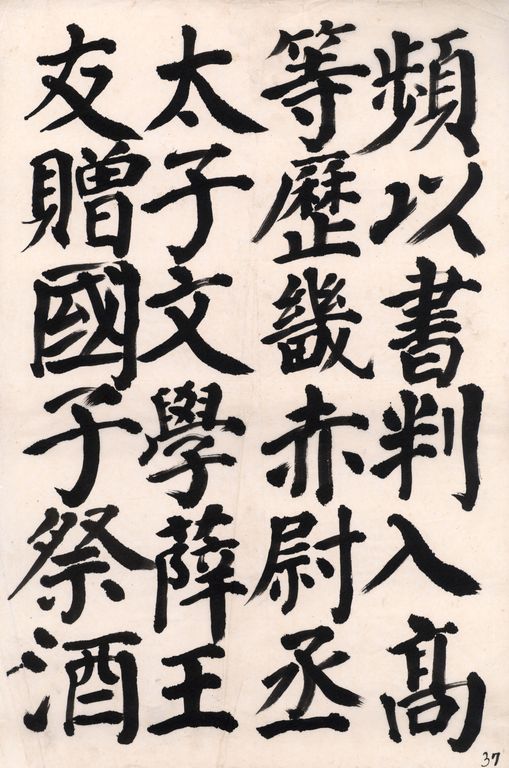 頻以書判入高
等歷畿赤尉丞
太子文學薛王
友贈國子祭酒
37